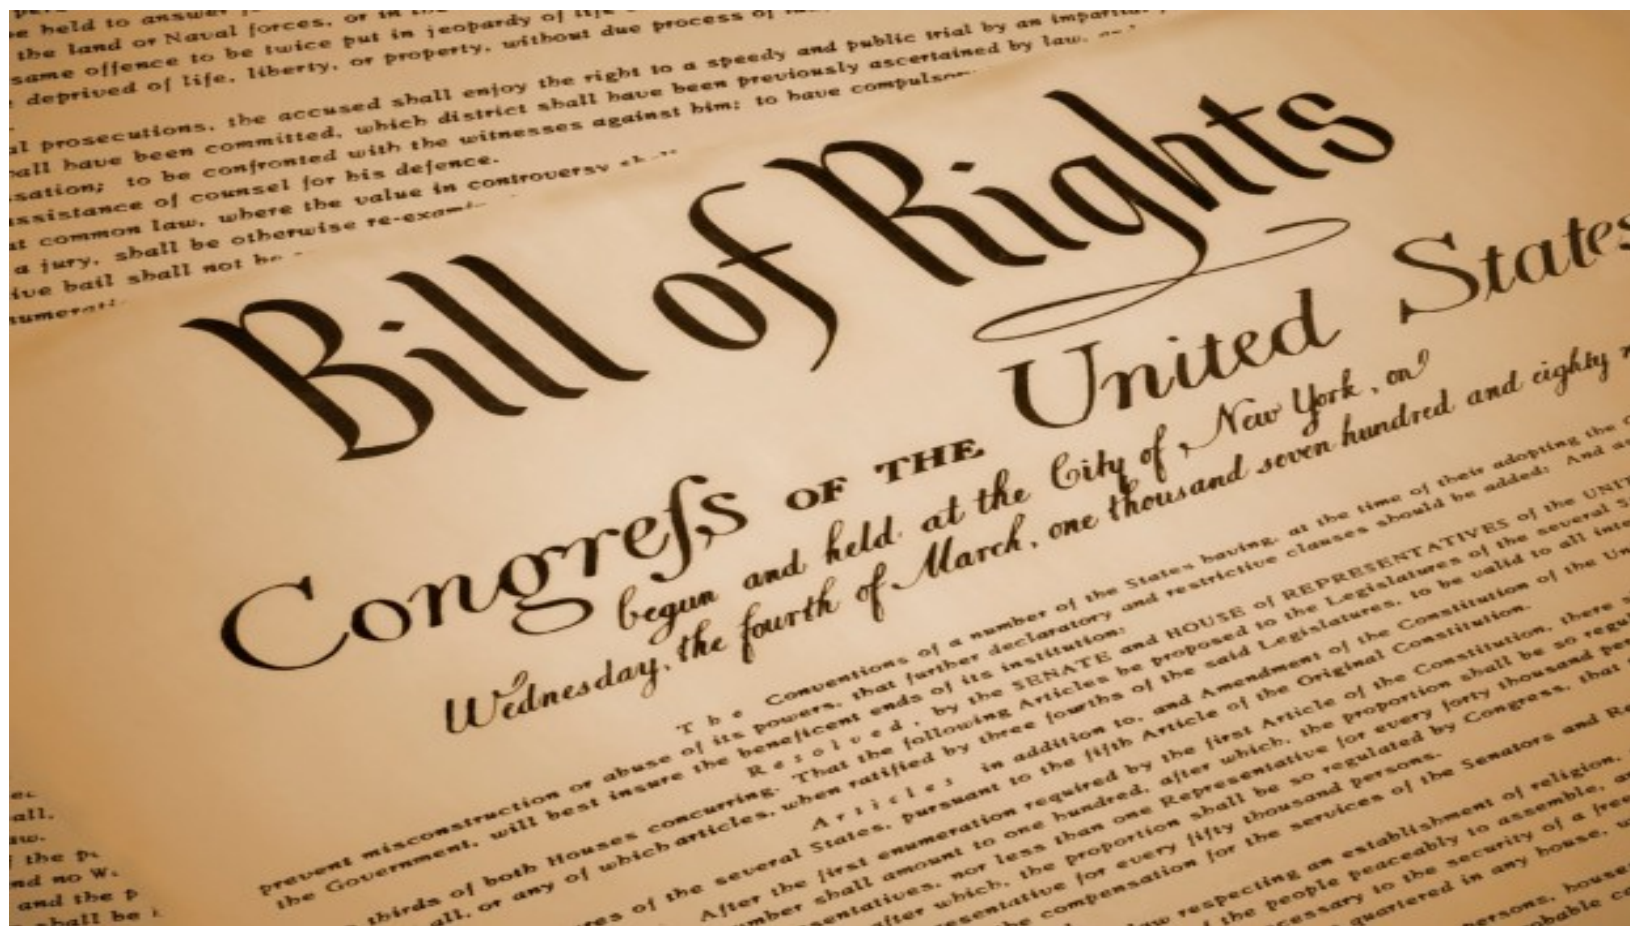 be held to answer
the land or Naval forces, or in the
same offence to be twice put in jeopardy of life
deprived of life, liberty, or property, without due process of
prosecutions, the accused shall enjoy the right to a speedy and public trial by an impartial
have been committed, which district shall have been previously ascertained by law,
to be confronted with the witnesses against him; to have
assistance of counsel for his defence.
at common law, where the value in controversy
a jury, shall be otherwise
bail shall not be
Bill of Rights
Congreſs OF THE United States
begun and held at the City of New York, on
Wednesday, the fourth of March, one thousand seven hundred and eighty
The Conventions of a number of the States having, at the time of their adopting the
prevent misconstruction or abuse of its powers, that further declaratory and restrictive clauses should be added: And
the Government, will best insure the beneficent ends of its institution;
Resolved, by the SENATE and HOUSE of REPRESENTATIVES of the
thirds of both Houses concurring. That the following Articles be proposed to the Legislatures of the several
all, or any of which articles, when ratified by three fourths of the said Legislatures, to be valid to all
Articles in addition to, and Amendment of the Constitution of the
of the several States, pursuant to the fifth Article of the Original Constitution.
After the first enumeration required by the first Article of the Constitution, there
shall amount to one hundred, after which, the proportion shall be so
nor less than one Representative for every forty thousand
after which, the proportion shall be so regulated by Congress, that
for every fifty thousand persons.
the compensation for the services of the Senators and
respecting an establishment of religion,
the people peaceably to assemble,
to the security of a
quartered in any house,
all,
the
and no
and the
shall be